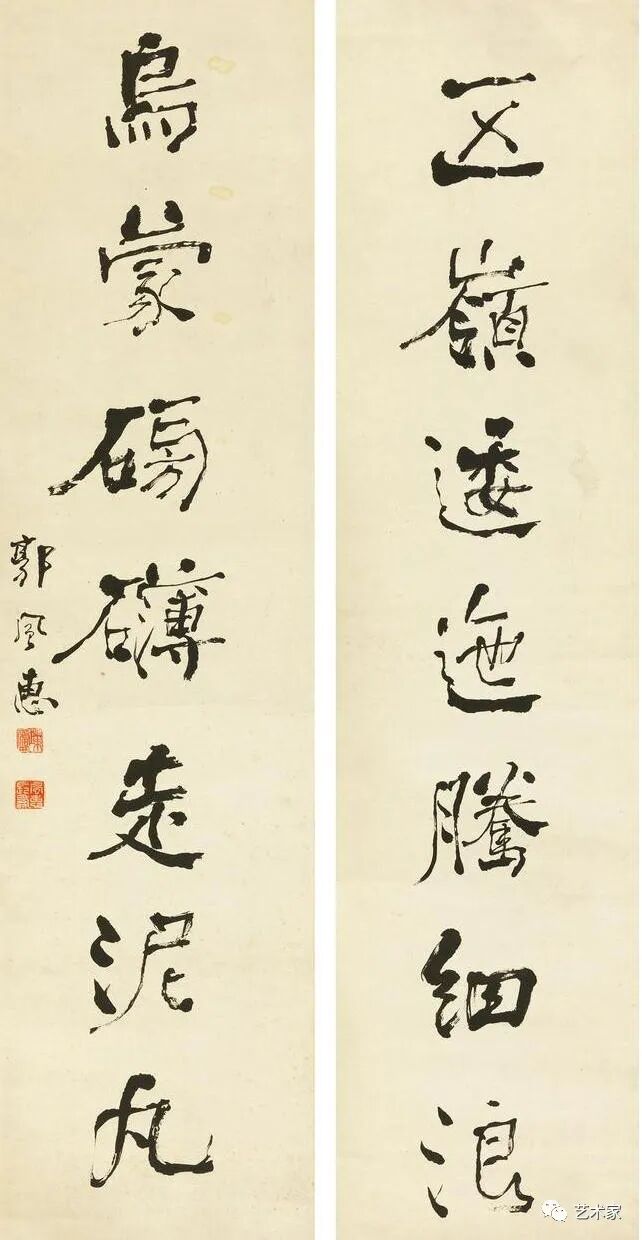 五嶺逶迤騰細浪
烏蒙磅礴走泥丸
郭風惠
艺术家